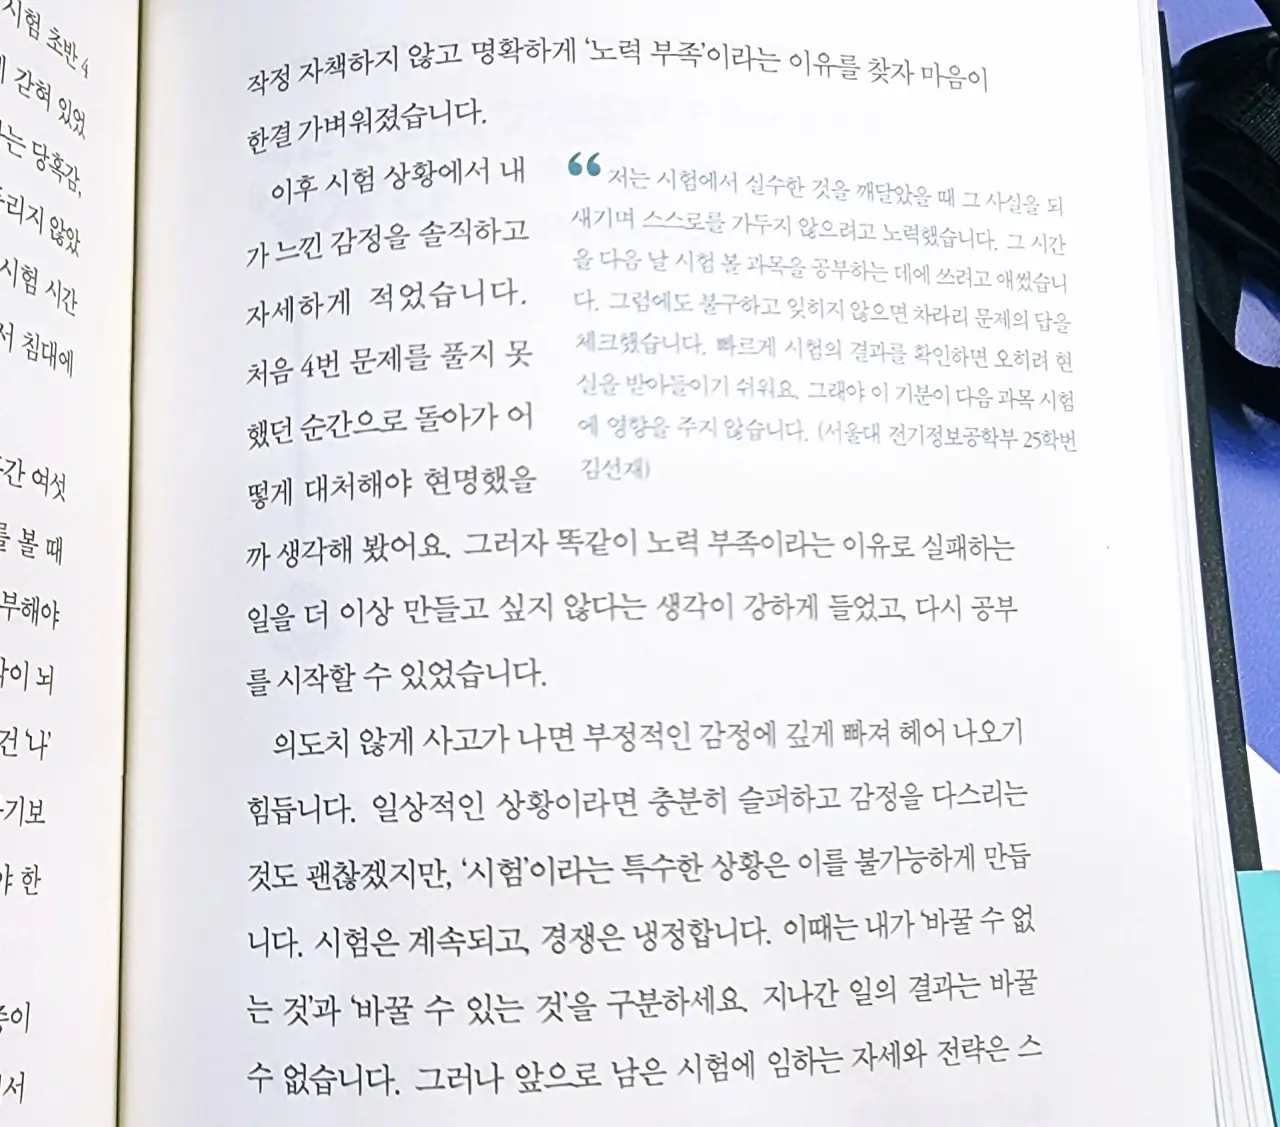 시험 초반 4
갇혀 있었
는 당혹감,
리지 않았
시험 시간
서 침대에
간 여섯
를 볼 때
부해야
각이 뇌
건 나’
기보
야 한
작정 자책하지 않고 명확하게 ‘노력 부족’이라는 이유를 찾자 마음이
한결 가벼워졌습니다.
이후 시험 상황에서 내
가 느낀 감정을 솔직하고
자세하게 적었습니다.
처음 4번 문제를 풀지 못
했던 순간으로 돌아가 어
떻게 대처해야 현명했을
“ 저는 시험에서 실수한 것을 깨달았을 때 그 사실을 되
새기며 스스로를 가두지 않으려고 노력했습니다. 그 시간
을 다음 날 시험 볼 과목을 공부하는 데에 쓰려고 애썼습니
다. 그럼에도 불구하고 잊히지 않으면 차라리 문제의 답을
체크했습니다. 빠르게 시험의 결과를 확인하면 오히려 현
실을 받아들이기 쉬워요. 그래야 이 기분이 다음 과목 시험
에 영향을 주지 않습니다. (서울대 전기정보공학부 25학번
김선재)
까 생각해 봤어요. 그러자 똑같이 노력 부족이라는 이유로 실패하는
일을 더 이상 만들고 싶지 않다는 생각이 강하게 들었고, 다시 공부
를 시작할 수 있었습니다.
의도치 않게 사고가 나면 부정적인 감정에 깊게 빠져 헤어 나오기
힘듭니다. 일상적인 상황이라면 충분히 슬퍼하고 감정을 다스리는
것도 괜찮겠지만, ‘시험’이라는 특수한 상황은 이를 불가능하게 만듭
니다. 시험은 계속되고, 경쟁은 냉정합니다. 이때는 내가 ‘바꿀 수 없
는 것’과 ‘바꿀 수 있는 것’을 구분하세요. 지나간 일의 결과는 바꿀
수 없습니다. 그러나 앞으로 남은 시험에 임하는 자세와 전략은 스